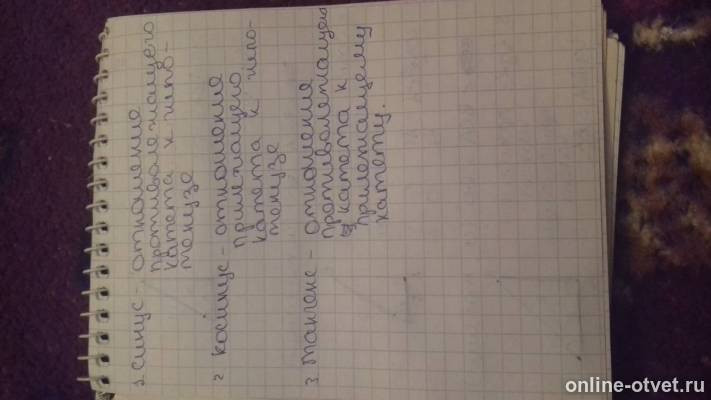 1. Синус - отношение
противолежащего
катета к гипо-
тенузе
2 косинус - отношение
прилежащего
катета к гипо-
тенузе
3. тангенс - отношение
противолежащего
катета к
прилежащему
катету.
online-otvet.ru